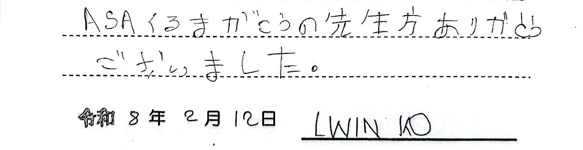 ASAくるまがっこうの先生方ありがとう
ございました。
令和 8 年 2 月 12 日 LWIN KO